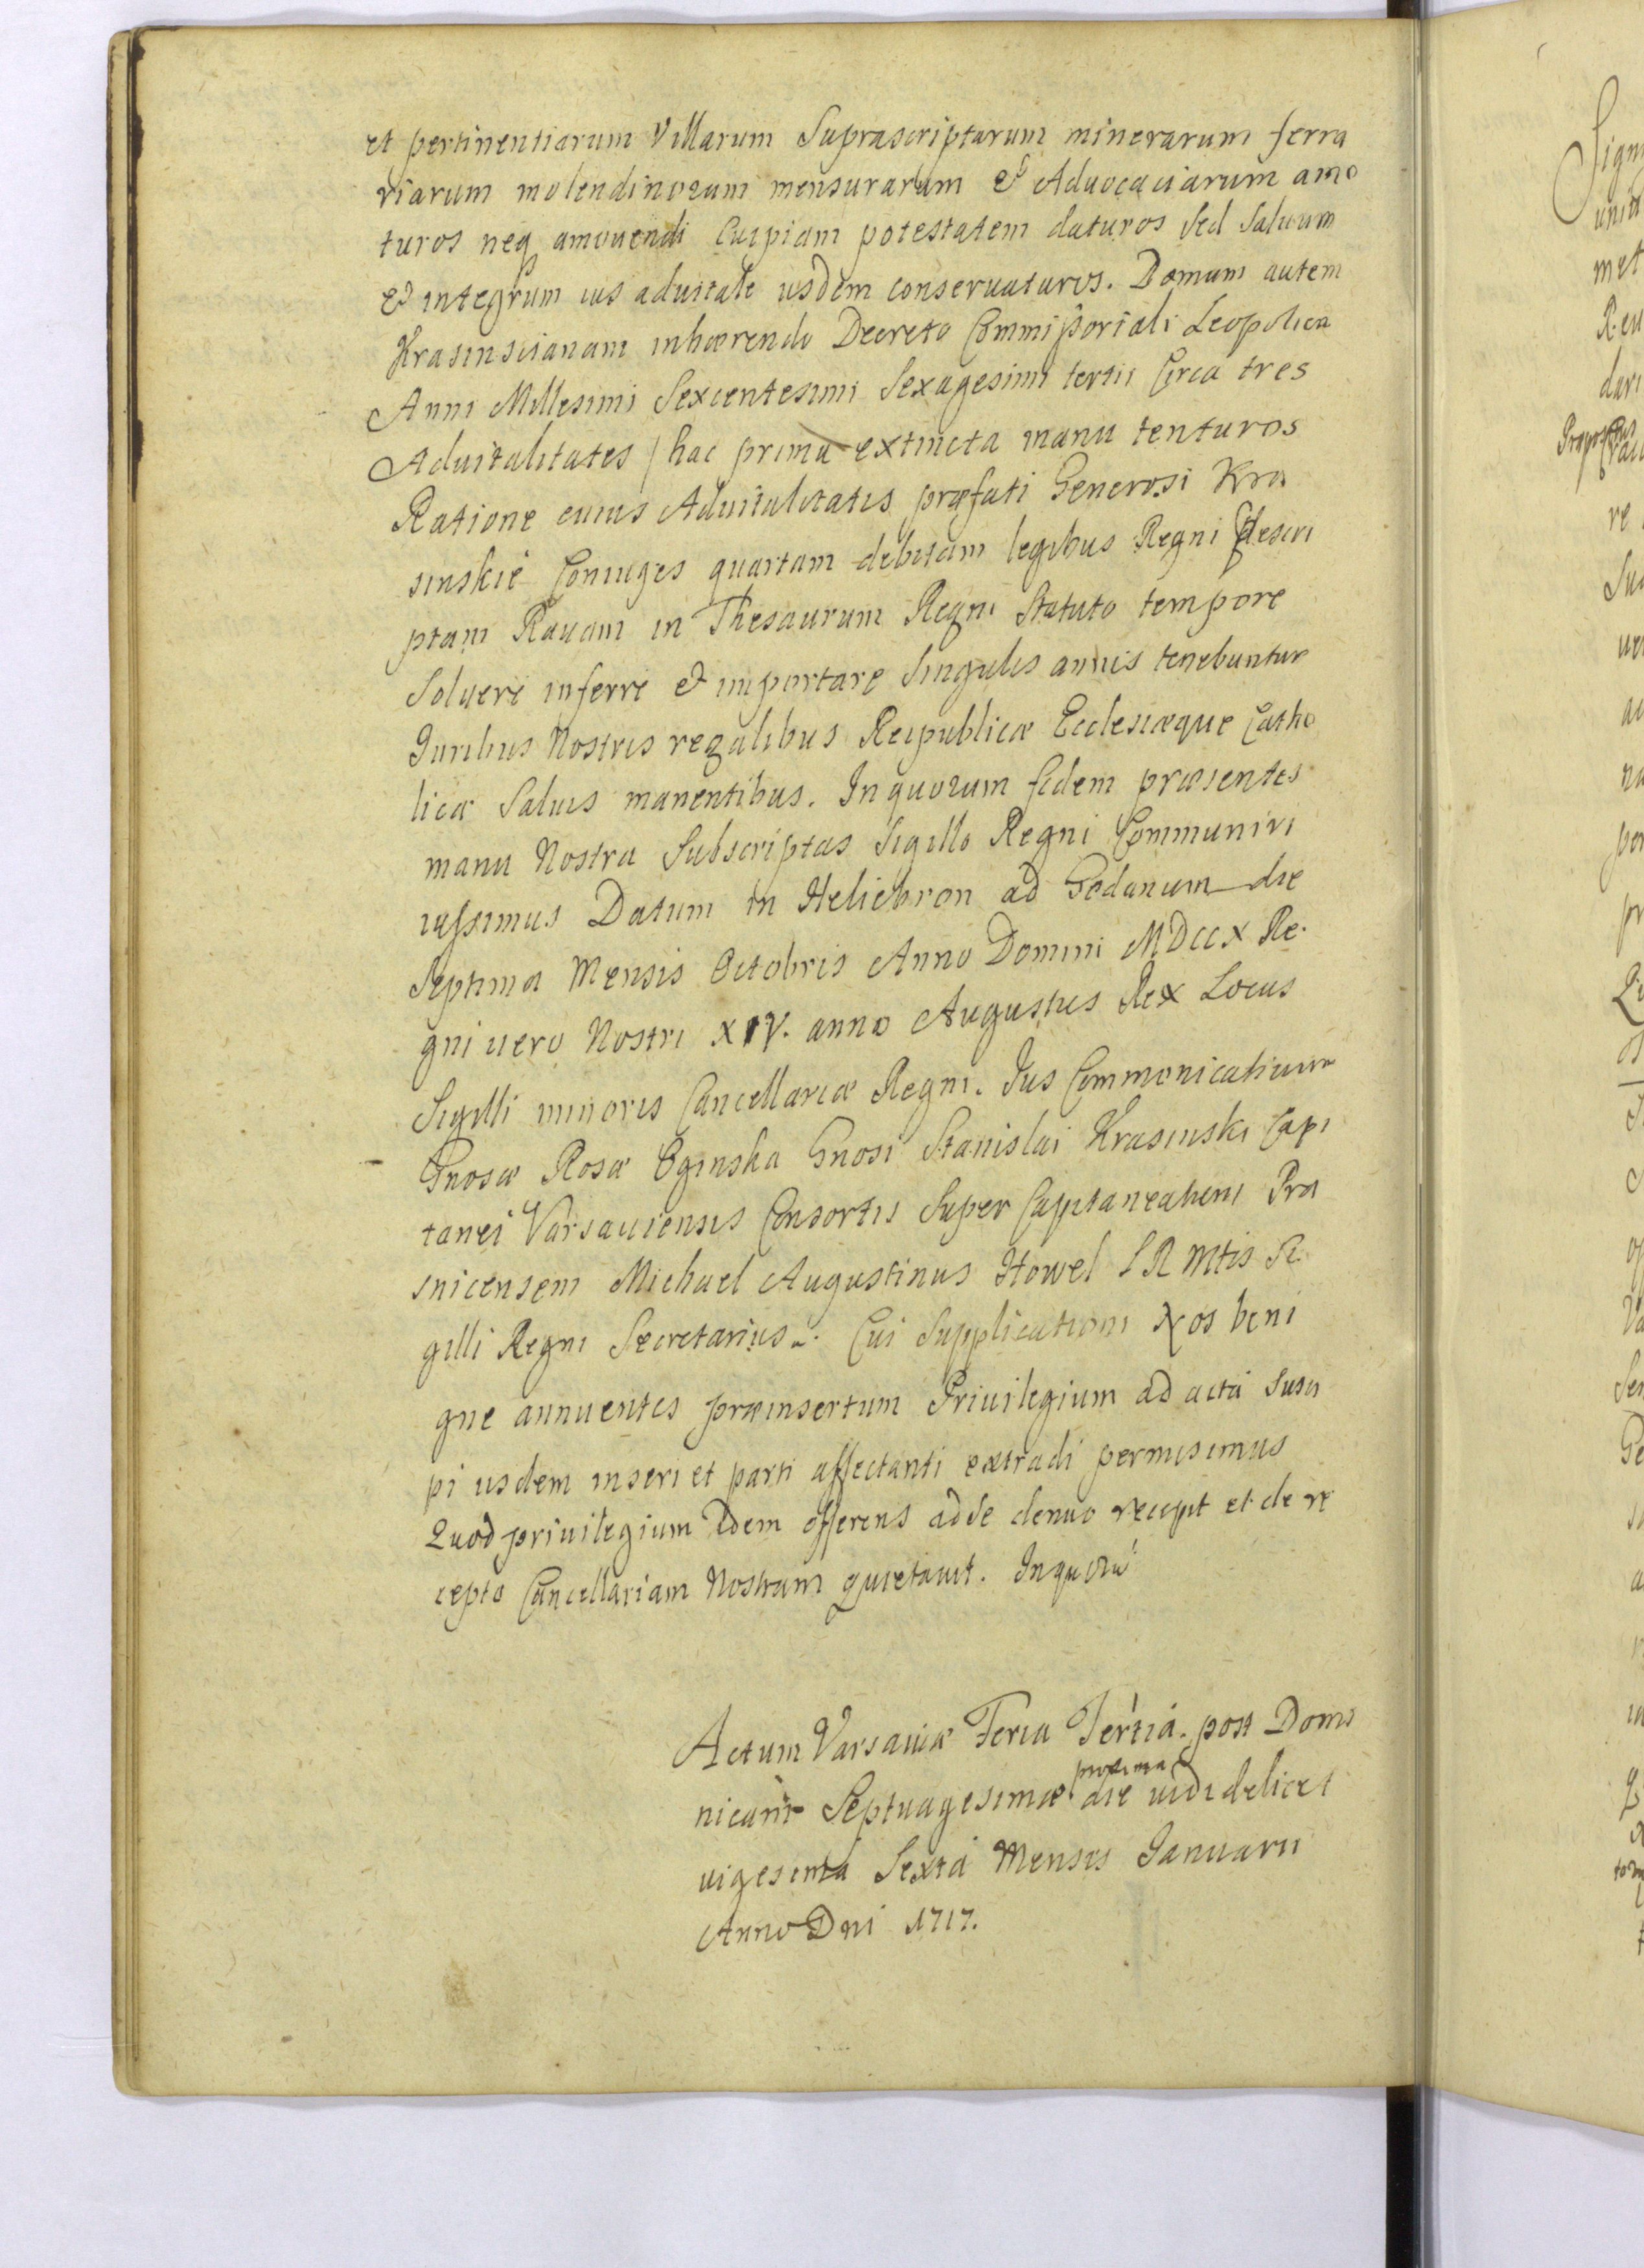 et pertinentiarum Villarum Suprascriptarum minerarum ferra
riarum molendinorum mensurarum & Aduocaciarum amo
turos neq amouendi Cuipiam potestatem daturos Sed Saluum
& integrum ius aduitale iisdem conseruaturos. Domum autem
Krasinscianam inhærendo Decreto Commissoriali Leopolien
Anni Millesimi Sexcentesimi Sexagesimi tertii Circa tres
Aduitalitates / hac prima extincta manu tenturos
Ratione cuius Aduitalitatis præfati Generosi Kra
sinskie Coniuges quartam debitam legibus Regni descri
ptam Rauam in Thesaurum Regni Statuto tempore
Soluere inferre & importare Singulis annis tenebuntur
Iuribus Nostris regalibus Reipublicæ Ecclesiæque Catho
licæ Saluis manentibus. In quorum fidem præsentes
manu Nostra Subscriptas Sigillo Regni Communiri
iussimus Datum in Heliebron ad Gedanum die
Septima Mensis Octobris Anno Domini MDCCX Re
gni uero Nostri XIV. anno Augustus Rex Locus
Sigilli minoris Cancellariæ Regni. Ius Commonicatiuum
Gnosæ Rosæ Oginska Gnosi Stanislai Krasinski Capi
tanei Varsauiensis Consortis Super Capitaneatum Pra
snicensem Michael Augustinus Howel S R Mtis Si
gilli Regni Secretarius. Cui Supplicationi Nos beni
gne annuentes præinsertum Priuilegium ad acta Susci
pi iisdem inseri et parti affectanti extradi permisimus
Quod priuilegium Idem offerens ad Se denuo recepit et de re
cepto Cancellariam Nostram quietauit. In quorū
Actum Varsauiæ Feria Tertia post Domi
nicam Septuagesimæ proxima die uidelicet
uigesima Sexta Mensis Ianuarii
Anno Dni 1717.